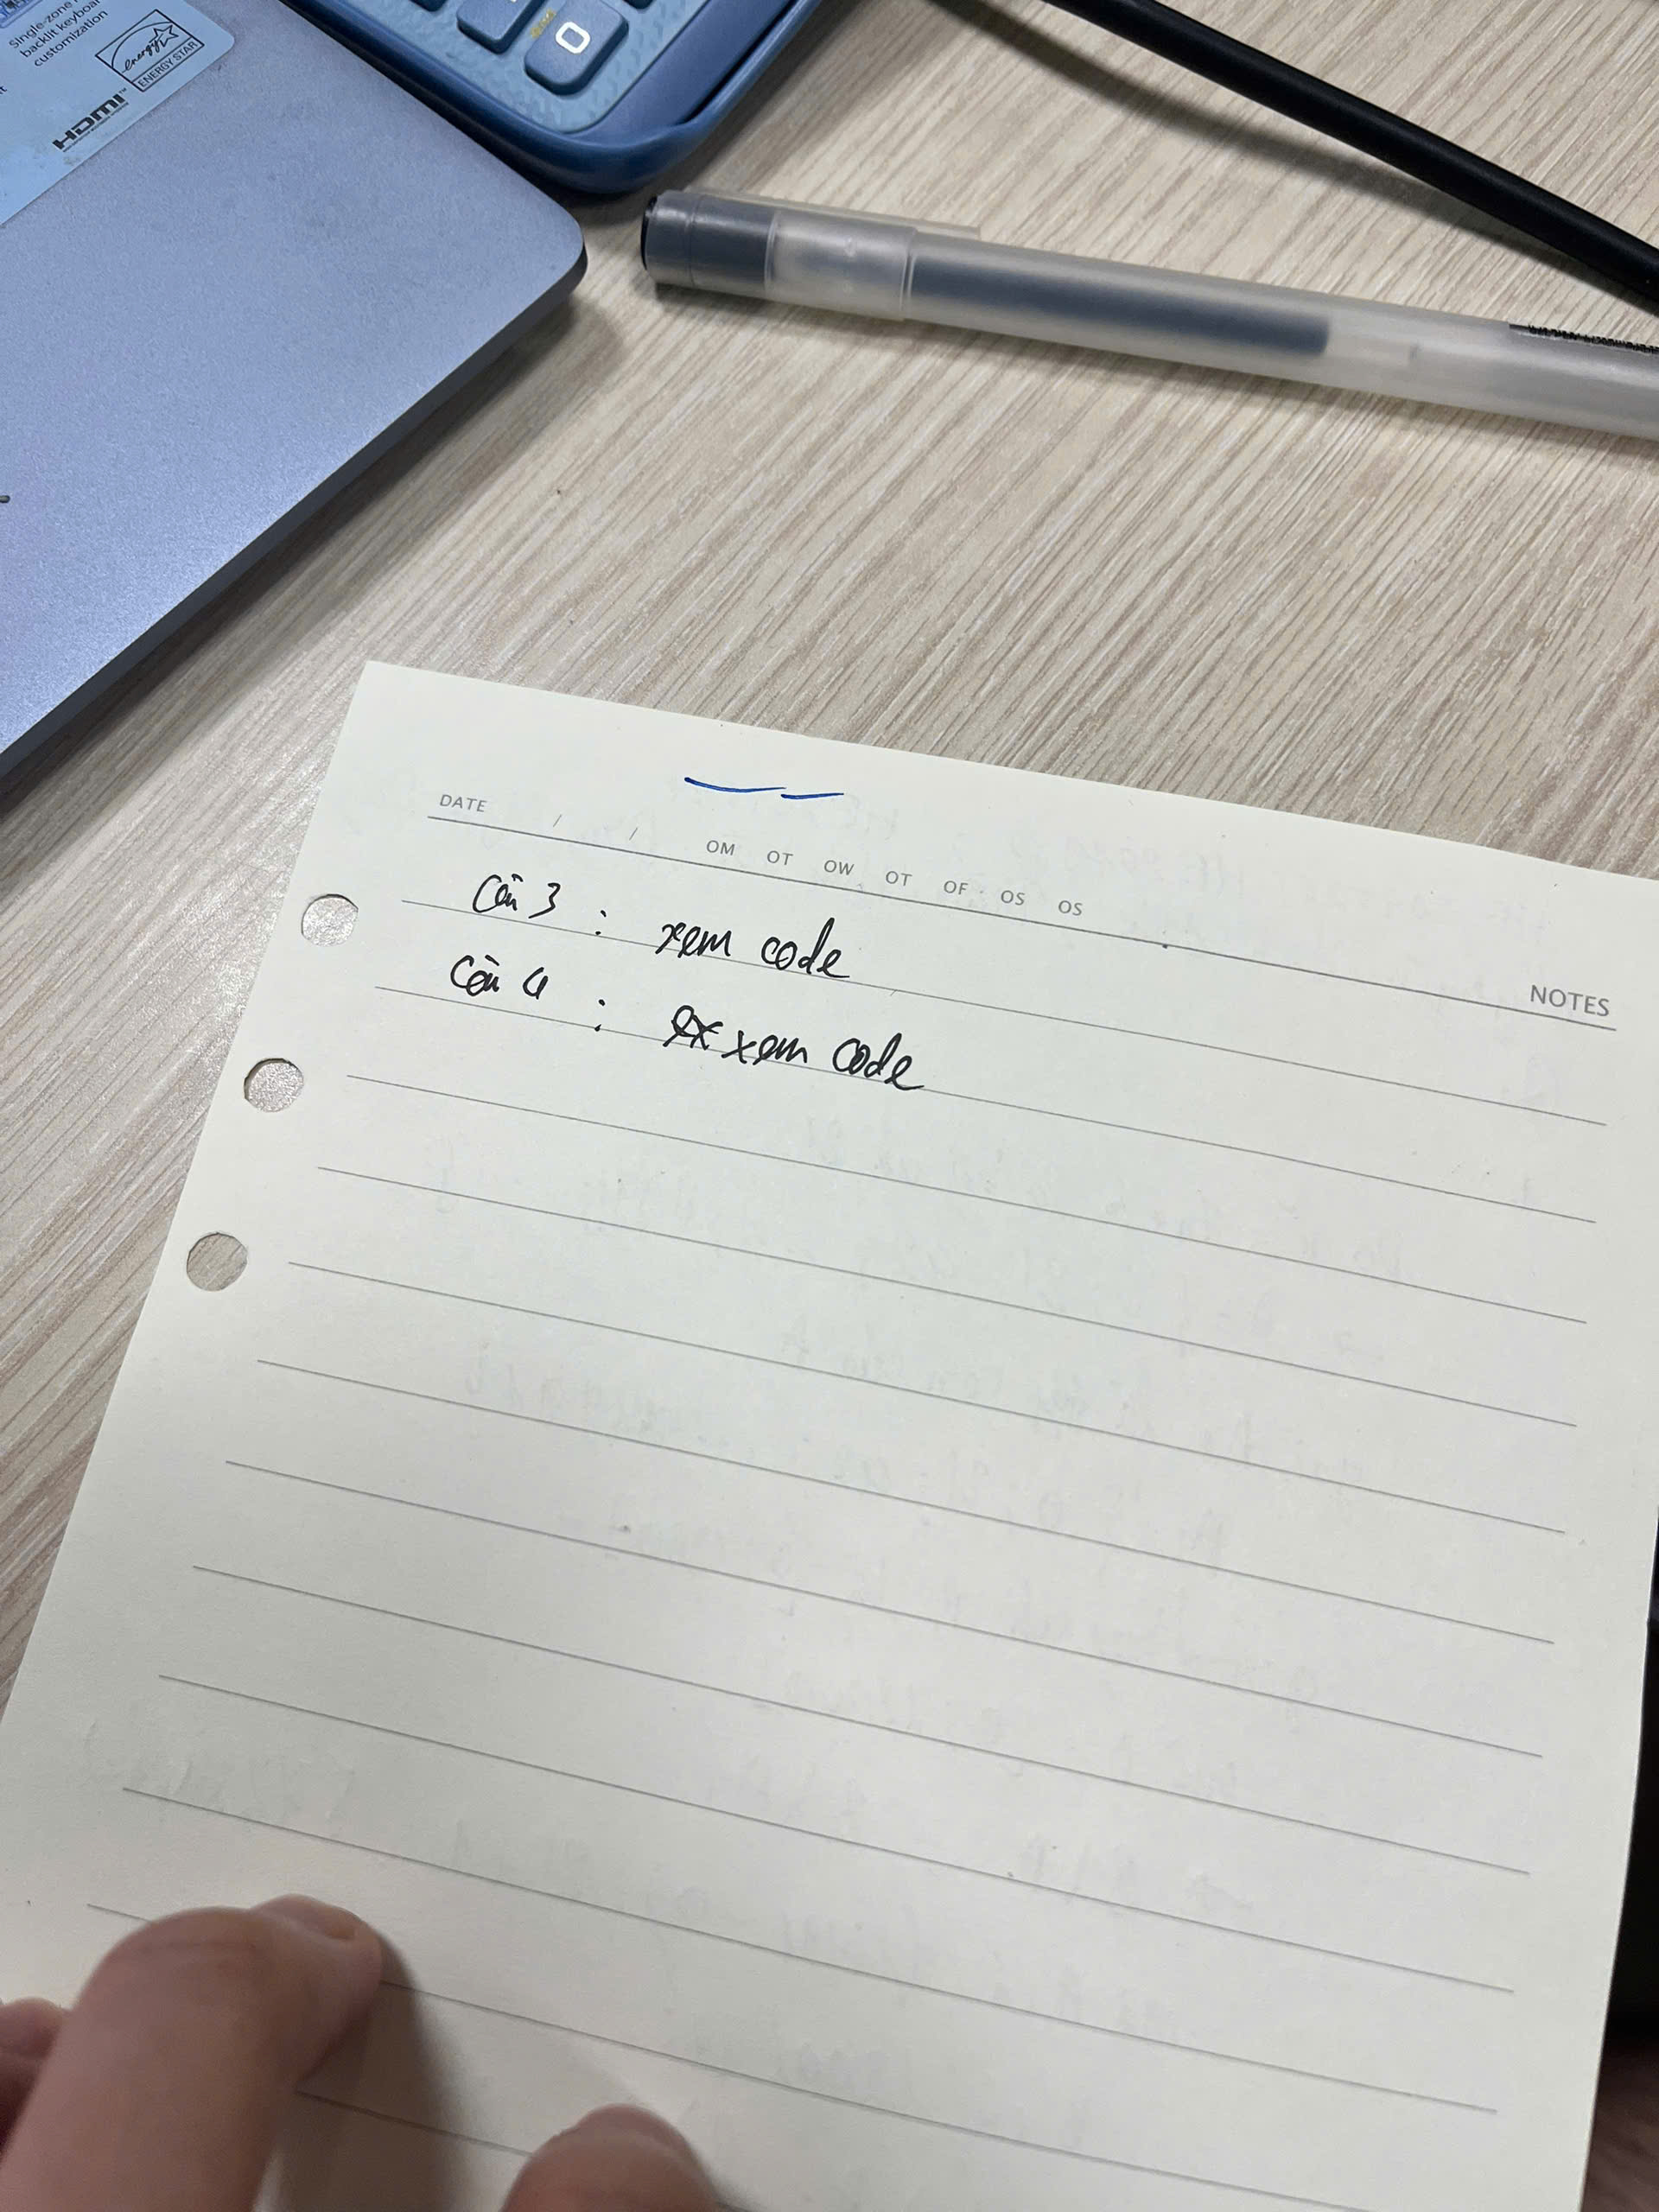 Single-zone
backlit keyboard
customization
energy
ENERGY STAR
HDMI
0
DATE / /
OM OT OW OT OF OS OS
NOTES
Câu 3 : xem code
Câu 4 : xem code